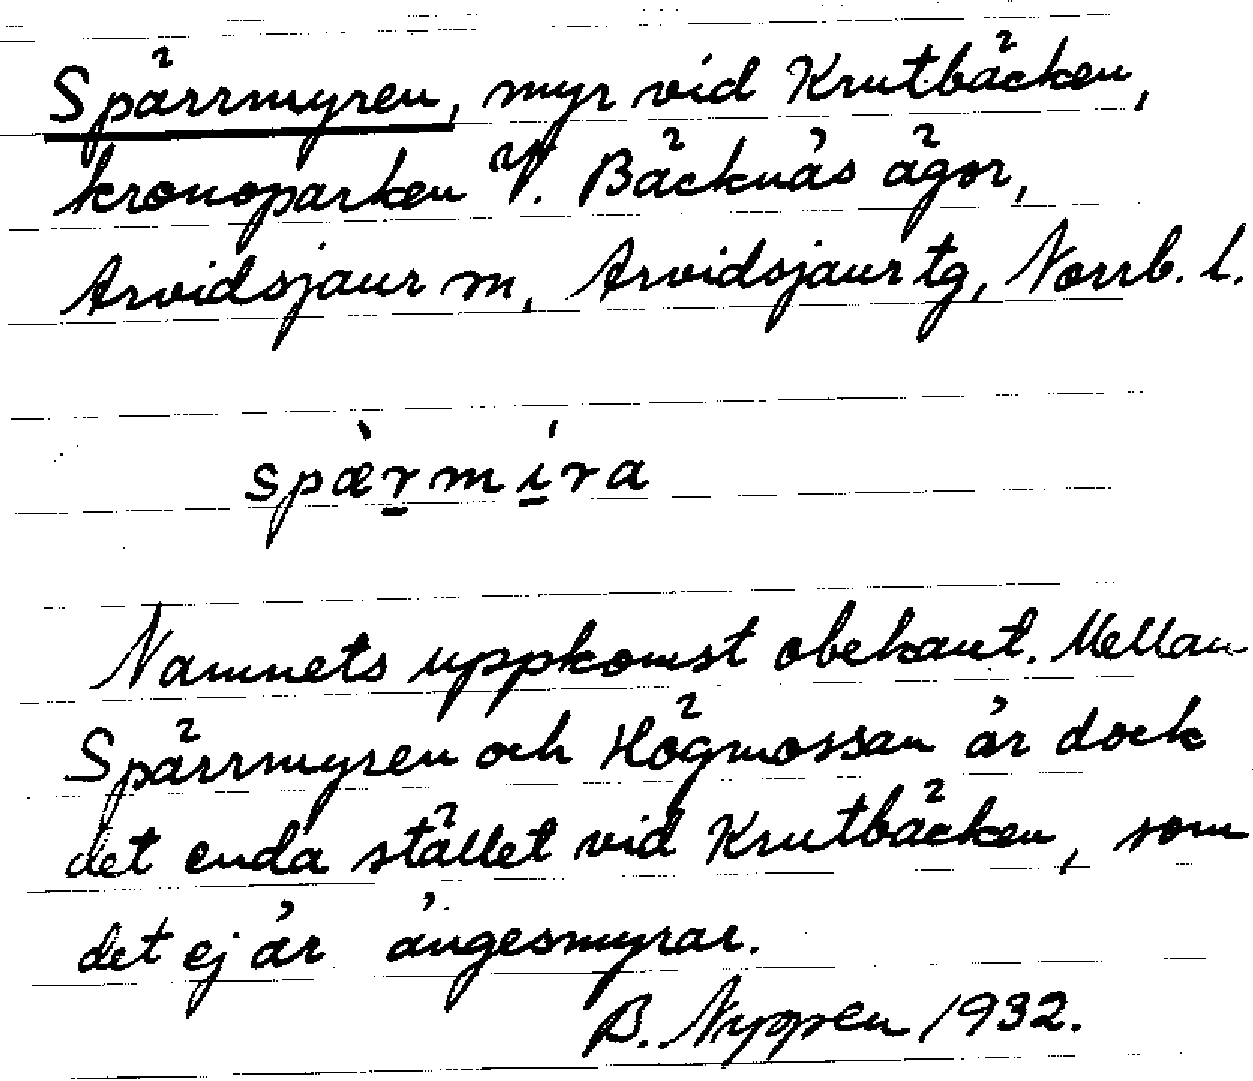 Spärrmyren, myr vid Krutbäcken,
kronoparken V. Bäcknäs ägor,
Arvidsjaur sn, Arvidsjaur tg, Norrb. l.
spæ̀rmíra
Namnets uppkomst obekant. Mellan
Spärrmyren och Högmossan är dock
det enda stället vid Krutbäcken, som
det ej är ängesmyrar.
B. Nyppen 1932.